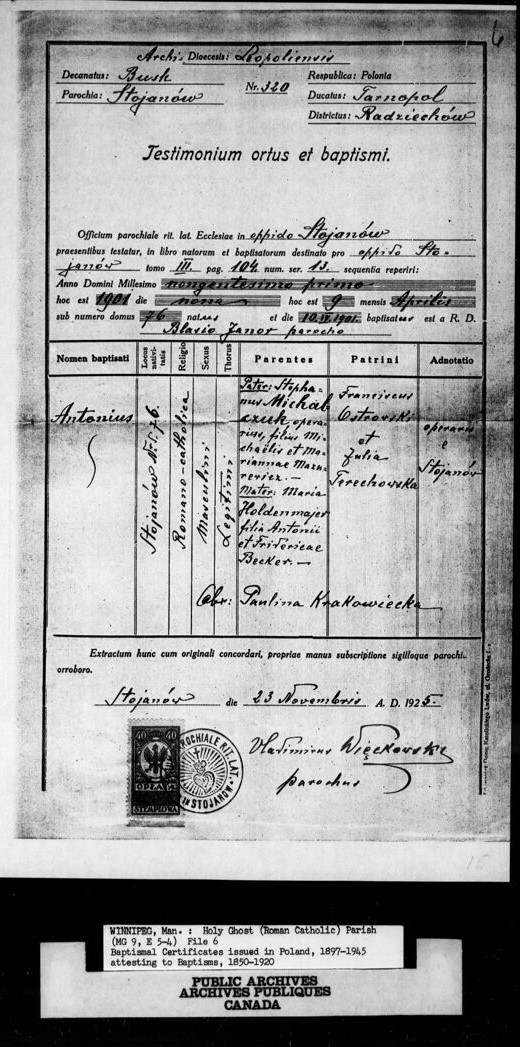 6
Archi Dioecesis: Leopoliensis
Decanatus: Busk
Parochia: Stojanów
Nr. 320
Respublica: Polonia
Ducatus: Tarnopol
Districtus: Radziechów
Testimonium ortus et baptismi.
Officium parochiale rit. lat. Ecclesiae in oppido Stojanów
praesentibus testatur, in libro natorum et baptisatorum destinato pro oppido Sto-
janów tomo III. pag. 104. num. ser. 13. sequentia reperiri:
Anno Domini Millesimo nongentesimo primo
hoc est 1901 die nona hoc est 9 mensis Aprilis
sub numero domus 76 natus et die 10.IV.1901. baptisatus est a R. D.
Blasio Janor parocho
Nomen baptisati
Locus nativi-
tatis
Religio
Sexus
Thorus
Parentes
Patrini
Adnotatio
Antonius
Stojanów Nr. 76.
Romano-catholica
Masculini
Legitimi
Pater: Stepha-
nus Michal
czuk opera-
rius, filius Mi-
chaëlis et Ma-
riannae Mazu-
rewicz. —
Mater: Maria
Holdenmajer
filia Antonii
et Fridericae
Becker. —
Franciscus
Ostrovski
et
Julia
Terechowska
operarii
e
Stojanów
Obr: Paulina Krakowiecka
Extractum hunc cum originali concordari, propriae manus subscriptione sigilloque parochi.
orroboro.
Stojanów die 23 Novembris A. D. 1925.
40 40
OPŁATA
STEMPLOWA
ROCHIALE RIT. LAT.
IN STOJANÓW
Vladimirus Więckowski
parochus
15
WINNIPEG, Man. : Holy Ghost (Roman Catholic) Parish
(MG 9, E 5-4) File 6
Baptismal Certificates issued in Poland, 1897-1945
attesting to Baptisms, 1850-1920
PUBLIC ARCHIVES
ARCHIVES PUBLIQUES
CANADA